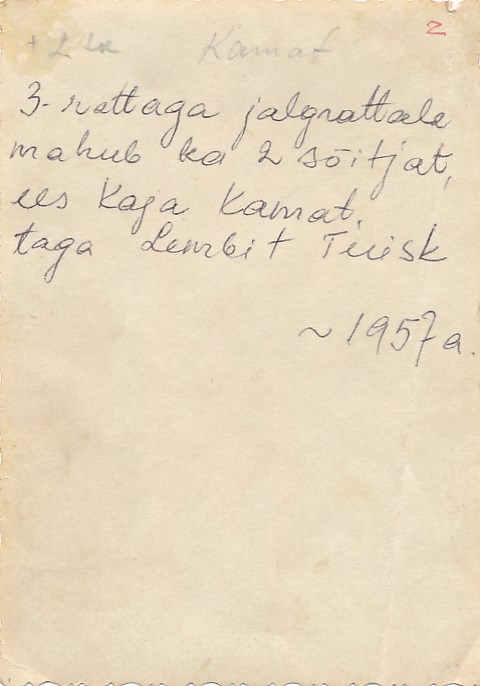 Kamat 2
3-rattaga jalgrattale
mahub ka 2 sõitjat,
ees Kaja Kamat,
taga Lembit Tiisk
~ 1957 a.